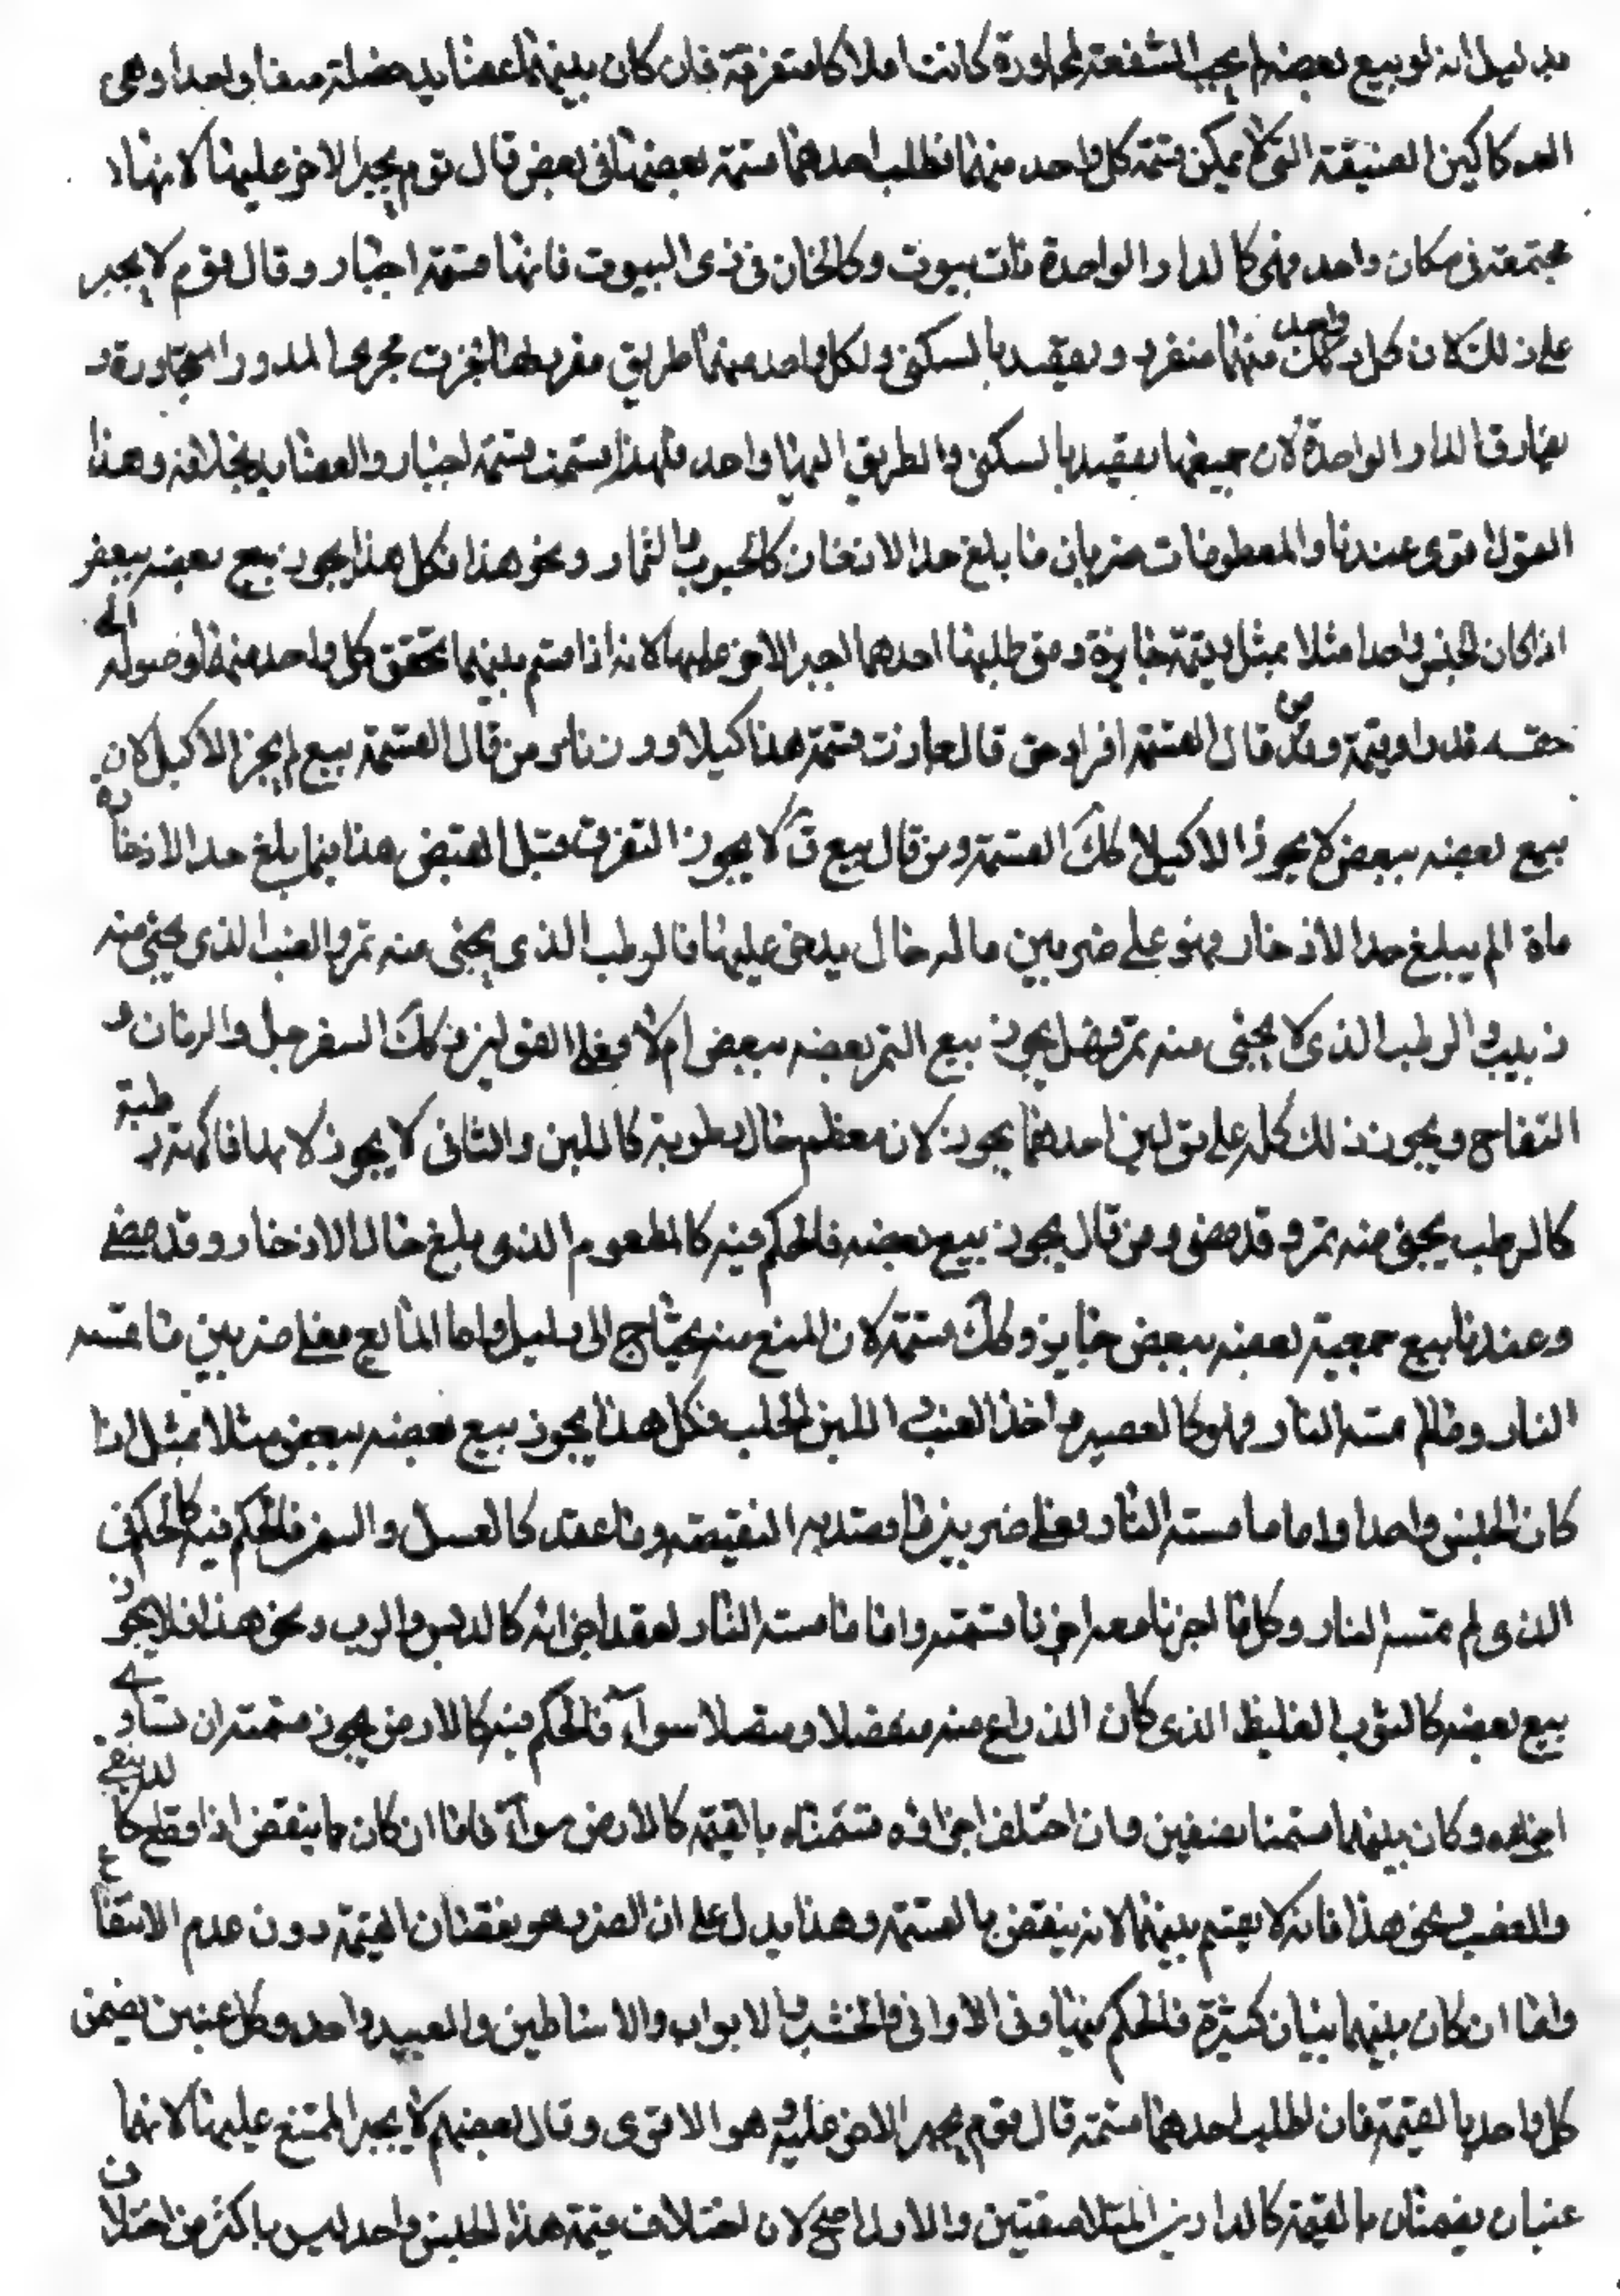 بدليل انه لو بيع بعضها لم يجب الشفعة لمجاورة كانت املاكا متفرقة فان كان بينهما عضايد متصلة صفا واحدا وهى
الدكاكين الضيقة التى لا يمكن قسمة كل واحد منهما فطلب احدهما قسمة بعضها فى بعض قال قوم يجبر الاخر عليها لانها
مجتمعة فى مكان واحد فهى كالدار الواحدة ذات بيوت وكالخان فى ذى البيوت فانها قسمة اجبار وقال قوم لا يجبر
على ذلك لان كل واحد منهما منفرد ويقصد بالسكنى ولكل واحد منهما طريق مفرد لها فجرت مجرى الدور المتجاورة و
يفارق الدار الواحدة لان جميعها يقصد بالسكنى والطريق اليها واحد فلهذا قسمت قسمة اجبار والعضايد بخلافه وهذا
القول اقوى عندنا والمطعومات ضربان ما بلغ حد الادخار كالحبوب والثمار ونحو هذا فكل هذا يجوز بيع بعضه ببعض
اذا كان الجنس واحدا مثلا بمثل وقسمته جايزة ومتى طلبها احدهما اجبر الاخر عليها لانه اذا قسم بينهما تحقق كل واحد منهما وصوله الى
حقه قدرا وقيمة ومن قال القسمة افراد حق قال جازت قسمة هذا كيلا ووزنا ومن قال القسمة بيع لم يجز الا كيلا لان
بيع بعضه ببعض لا يجوز الا كيلا كك القسمة ومن قال بيع قال لا يجوز التفرق قبل القبض هذا فيما بلغ حد الادخار
فاما ما لم يبلغ حد الادخار فهو على ضربين ما له حال يدخر عليها فالرطب الذى يجئ منه تمر والعنب الذى يجئ منه
زبيب والرطب الذى لا يجئ منه تمر فهل يجوز بيع التمر بعضه ببعض ام لا فعلى القولين وكك السفرجل والرمان و
التفاح ويجوز ذلك كله على قولين احدهما يجوز لان معظم حال رطوبته كاللبن والثانى لا يجوز لانها فاكهة رطبة
كالرطب يجئ منه تمر وقد مضى ومن قال يجوز بيع بعضه فالحكم فيه كالمطعوم الذى بلغ حال الادخار وقد مضى
وعندنا بيع جميعه بعضه ببعض جايز وكك قسمته لان المنع منه يحتاج الى دليل واما المايع فعلى ضربين ما مسته
النار وما لم تمسه النار فهو كالعصير واخذ العنب اللبن الحليب فكل هذا يجوز بيع بعضه ببعض مثلا بمثل اذا
كان الجنس واحدا واما ما مسته النار فعلى ضربين ما قصد به التصفية وما عقد كالعسل والسمن فالحكم فيه كالحكم فى
الذى لم تمسه النار وكل ما اجزنا معه اجزنا قسمته واما ما مسته النار لعقد اجزائه كالدبس والرب ونحو هذا فلا يجوز
بيع بعضه كالثوب الغليظ الذى كان الذراع منه منفصلا ومتصلا سوآء فالحكم فيه كالارض يجوز قسمته ان تساوى
اجزاءه وكان بينهما قسمنا نصفين وان اختلف اجزاؤه قسمناه بالقيمة كالارض سوآء فاما ان كان مما ينقص اذا قطع كالدبيقى
والقصب ونحو هذا فانه لا يقسم بينهما لانه ينقص بالقسمة وهذا يدل على ان الضرر هو نقصان القيمة دون عدم الانتفاع
واما ان كان بينهما ثياب كثيرة فالحكم فيها وفى الاوانى والخشب والابواب والاساطين والعبيد واحد وكل عين يضمن
كل واحد بالقيمة فان طلب احدهما قسمة قال قوم يجبر الاخر عليه وهو الاقوى وقال بعضهم لا يجبر الممتنع عليها لانها
عينان يضمنان بالقيمة كالدارين المتلاصقتين والاول اصح لان اختلاف قيمة هذا الجنس واحد ليس باكثر من اختلاف